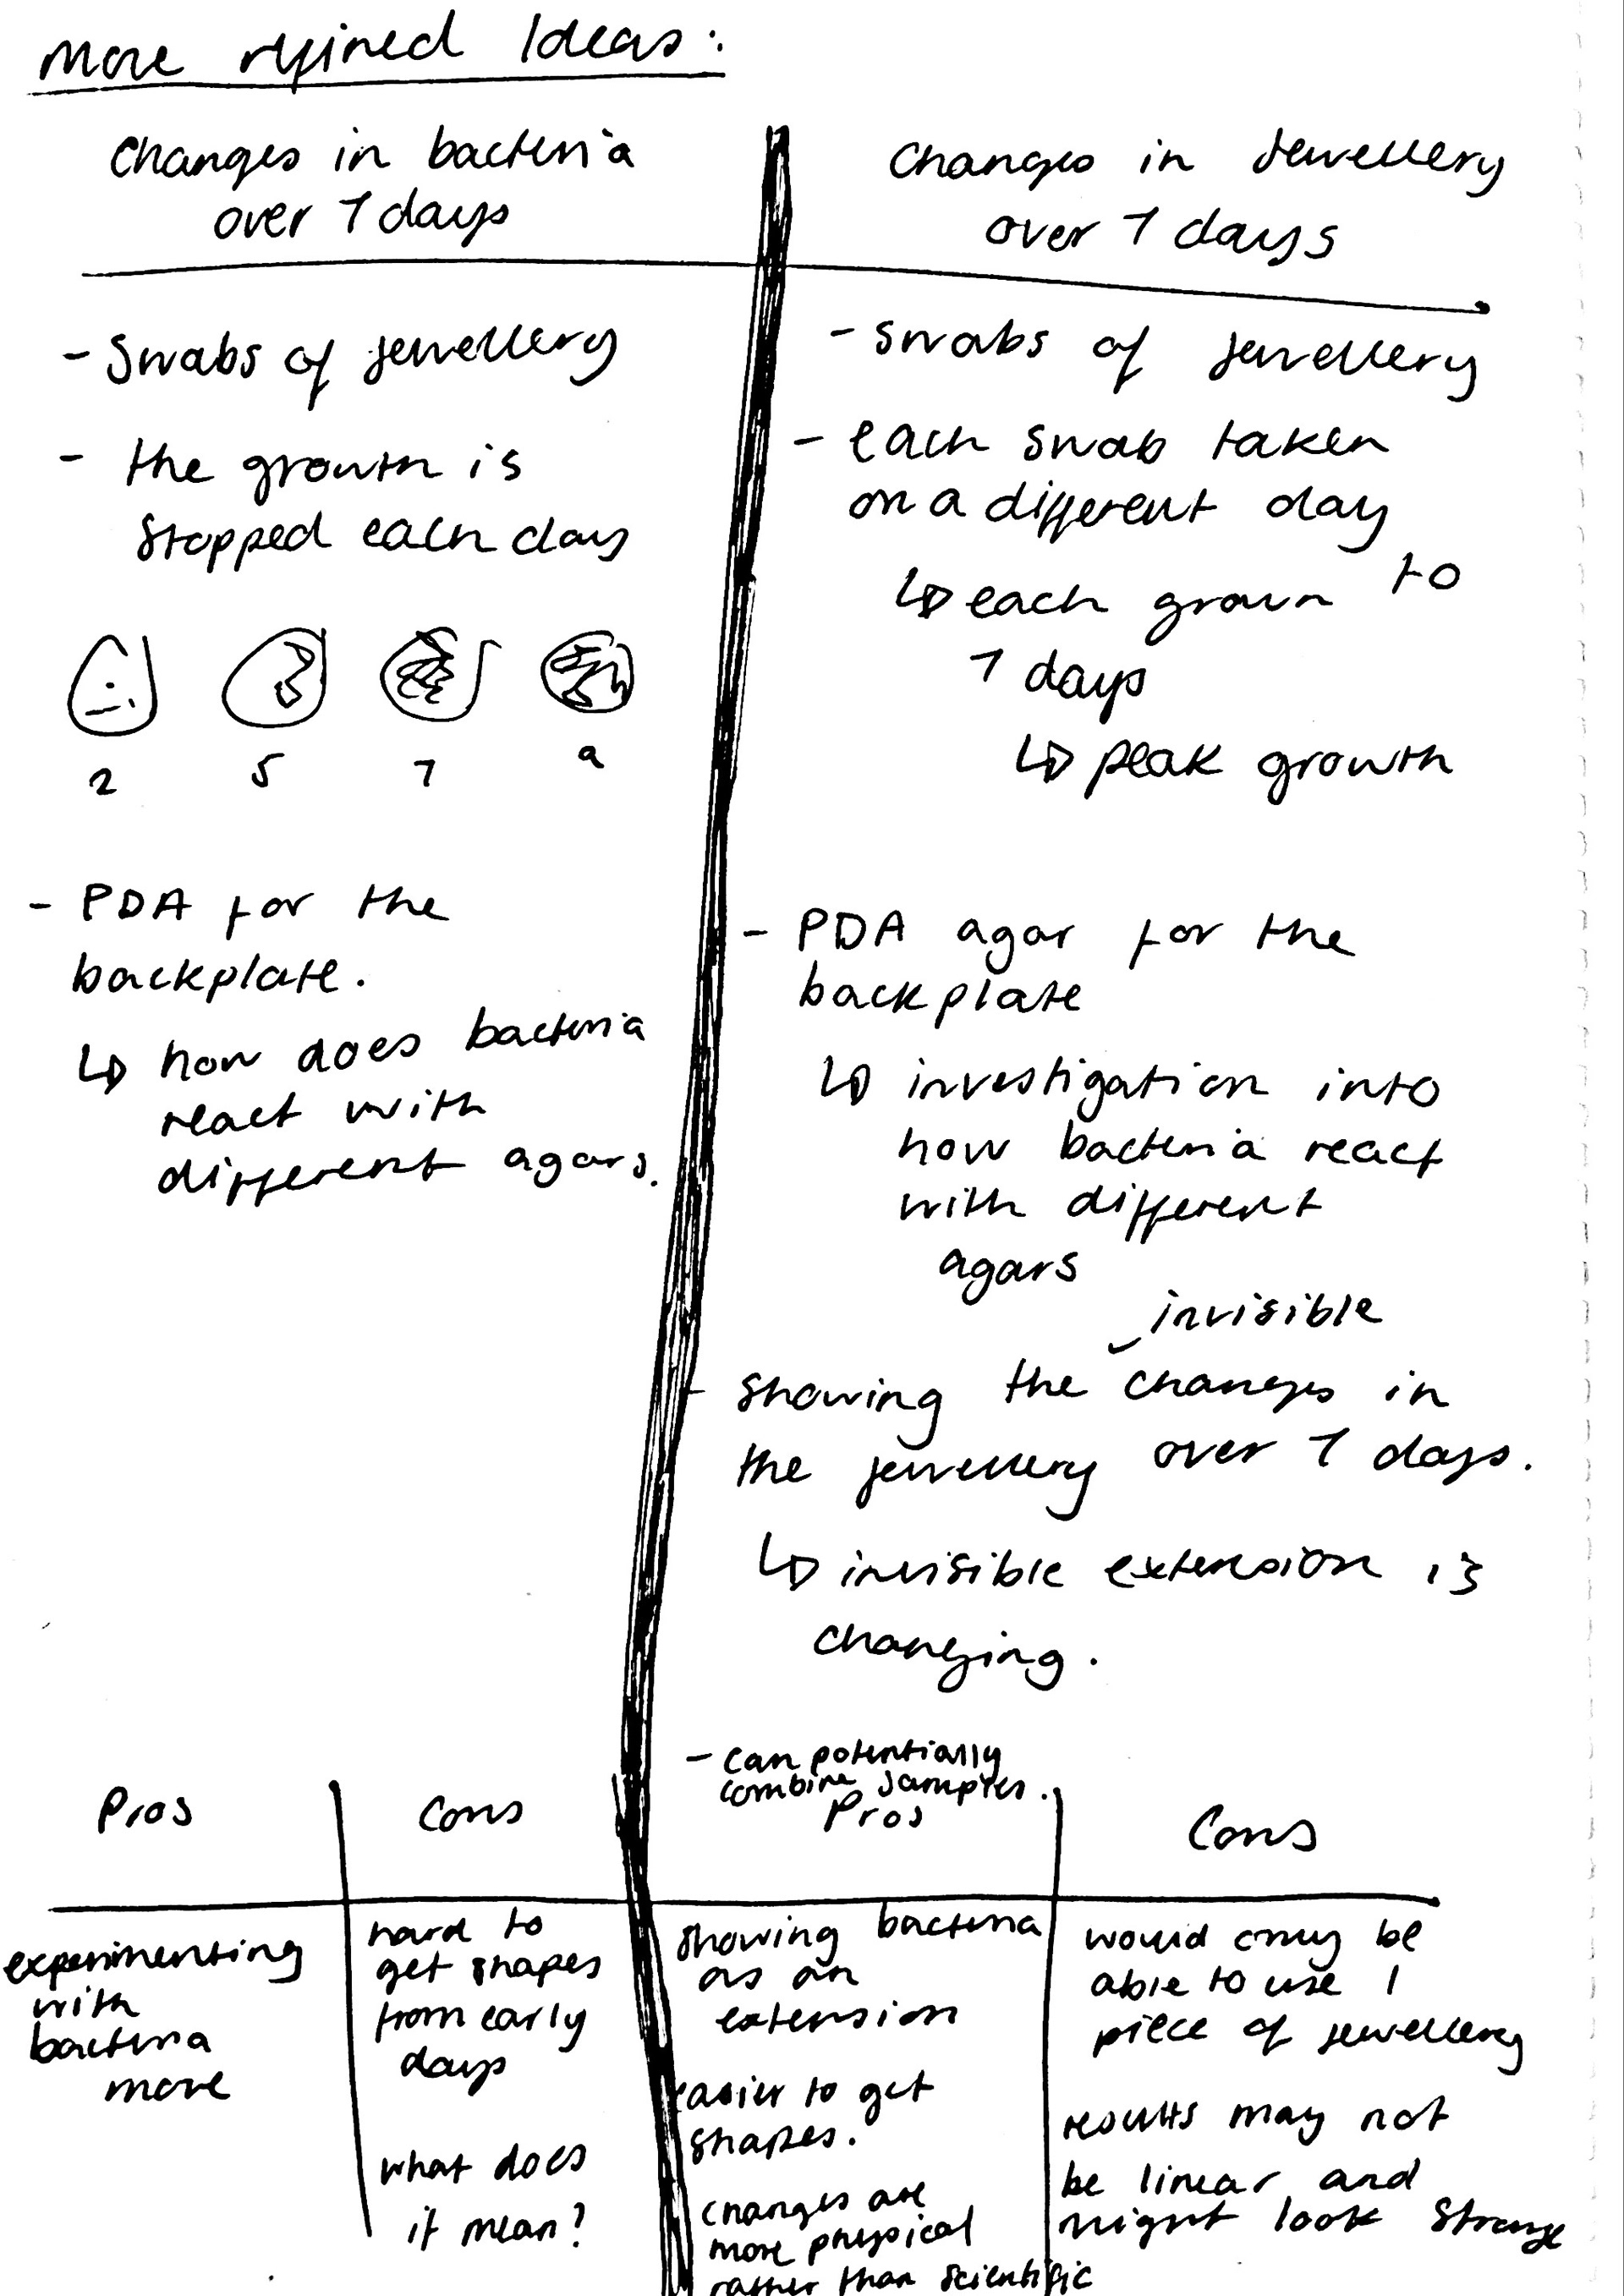 More refined Ideas:
Changes in bacteria
over 7 days
- Swabs of jewellery
- the growth is
stopped each day
2 5 7 9
- PDA for the
backplate.
↳ how does bacteria
react with
different agars.
Pros
experimenting
with
bacteria
more
Cons
hard to
get shapes
from early
days
what does
it mean?
Changes in Jewellery
over 7 days
- swabs of jewellery
- each swab taken
on a different day
↳ each grown to
7 days
↳ peak growth
- PDA agar for the
backplate
↳ investigation into
how bacteria react
with different
agars
invisible
- showing the changes in
the jewellery over 7 days.
↳ invisible extension is
changing.
- can potentially
combine samples.
Pros
showing bacteria
as an
extension
easier to get
shapes.
changes are
more physical
rather than scientific
Cons
would only be
able to use 1
piece of jewellery
results may not
be linear and
might look strange